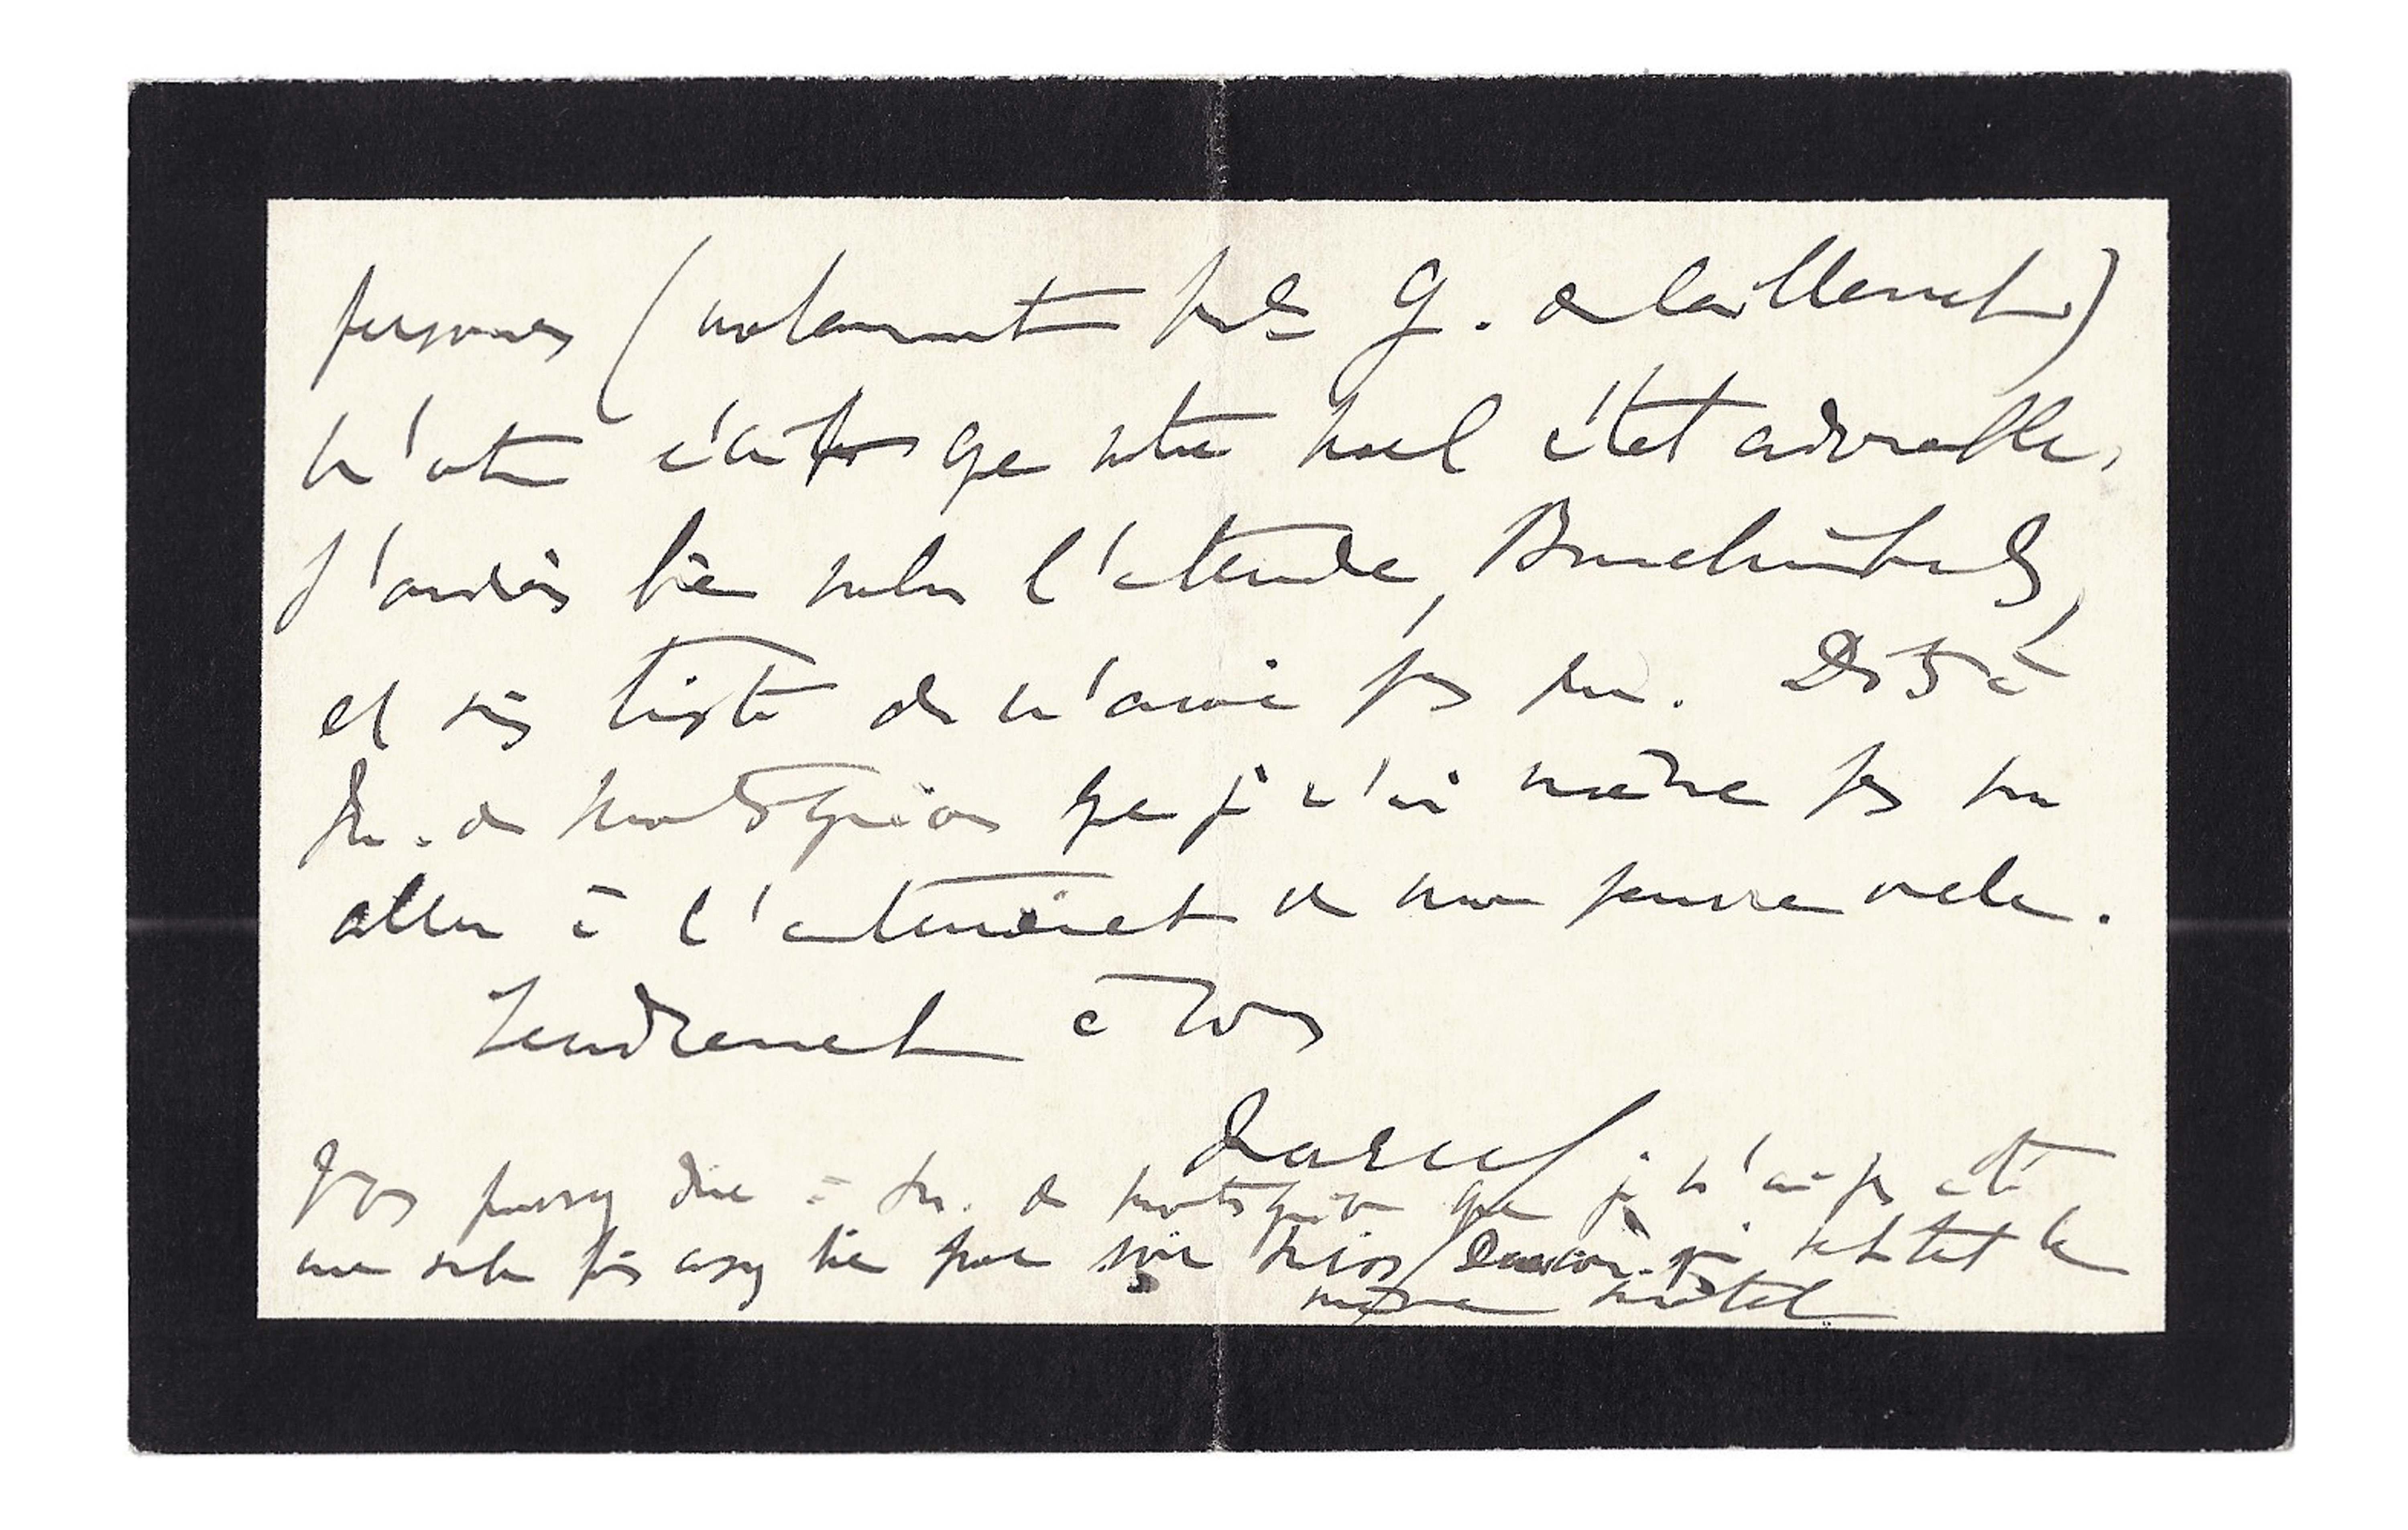 personnes (notamment Me G. de Caillavet)
m'ont écrit que votre noel était adorable.
J'aurais bien voulu l'entendre, Bunchnibuls,
et suis triste de n'avoir pas pu. Dites à
M. de Montesquiou que je n'ai même pas pu
aller à l'enterrement de mon pauvre oncle.
Tendrement à vous
Marcel
Vous pouvez dire à M. de Montesquiou que je n'ai pas été
une seule fois assez bien pour voir Miss Deacon qui habitait le
même hôtel